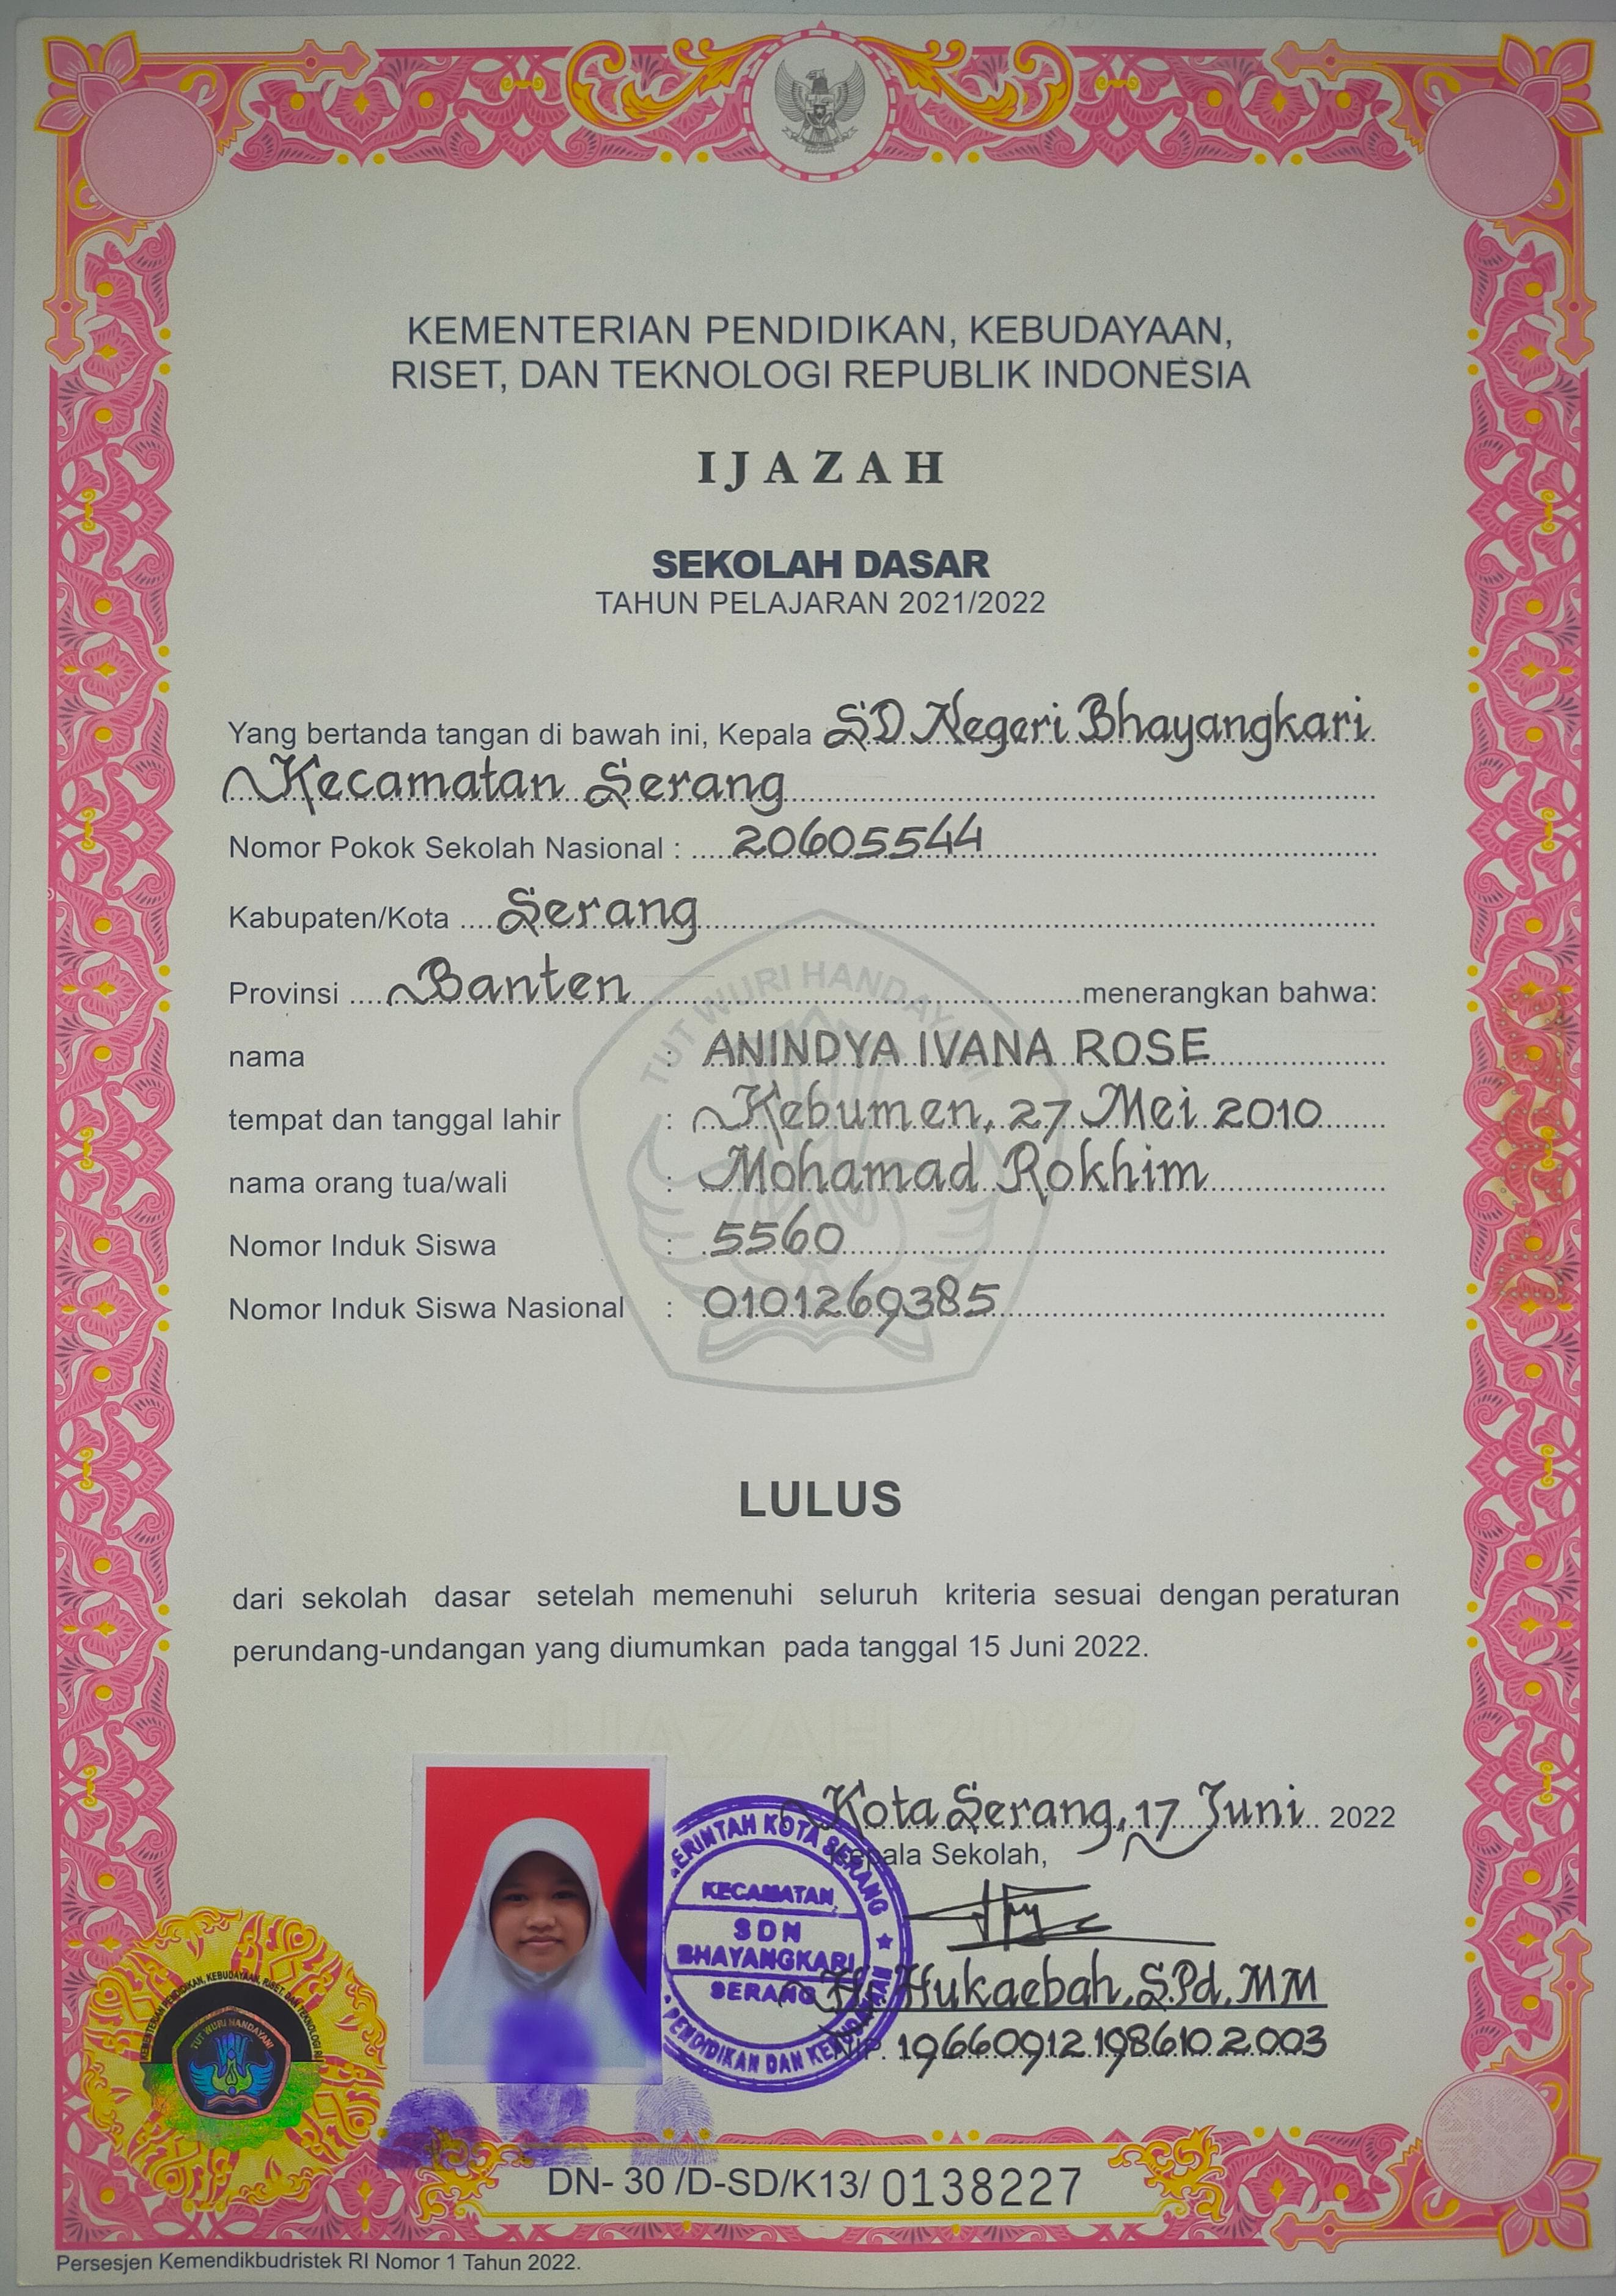 KEMENTERIAN PENDIDIKAN, KEBUDAYAAN,
RISET, DAN TEKNOLOGI REPUBLIK INDONESIA
IJAZAH
SEKOLAH DASAR
TAHUN PELAJARAN 2021/2022
Yang bertanda tangan di bawah ini, Kepala SD Negeri Bhayangkari
Kecamatan Serang
Nomor Pokok Sekolah Nasional : 20605544
Kabupaten/Kota Serang
Provinsi Banten menerangkan bahwa:
TUT WURI HANDAYANI
nama : ANINDYA IVANA ROSE
tempat dan tanggal lahir : Kebumen, 27 Mei 2010
nama orang tua/wali : Mohamad Rokhim
Nomor Induk Siswa : 5560
Nomor Induk Siswa Nasional : 0101269385
LULUS
dari sekolah dasar setelah memenuhi seluruh kriteria sesuai dengan peraturan
perundang-undangan yang diumumkan pada tanggal 15 Juni 2022.
IJAZAH 2022
Kota Serang, 17 Juni 2022
Kepala Sekolah,
KOTA SERANG
KECAMATAN
SDN
BHAYANGKARI
SERANG
PENDIDIKAN DAN
Hj. Hukaebah, S.Pd, MM
NIP. 19660912 198610 2 003
KEMENTERIAN PENDIDIKAN, KEBUDAYAAN, RISET, DAN TEKNOLOGI RI
TUT WURI HANDAYANI
DN- 30 /D-SD/K13/ 0138227
Persesjen Kemendikbudristek RI Nomor 1 Tahun 2022.